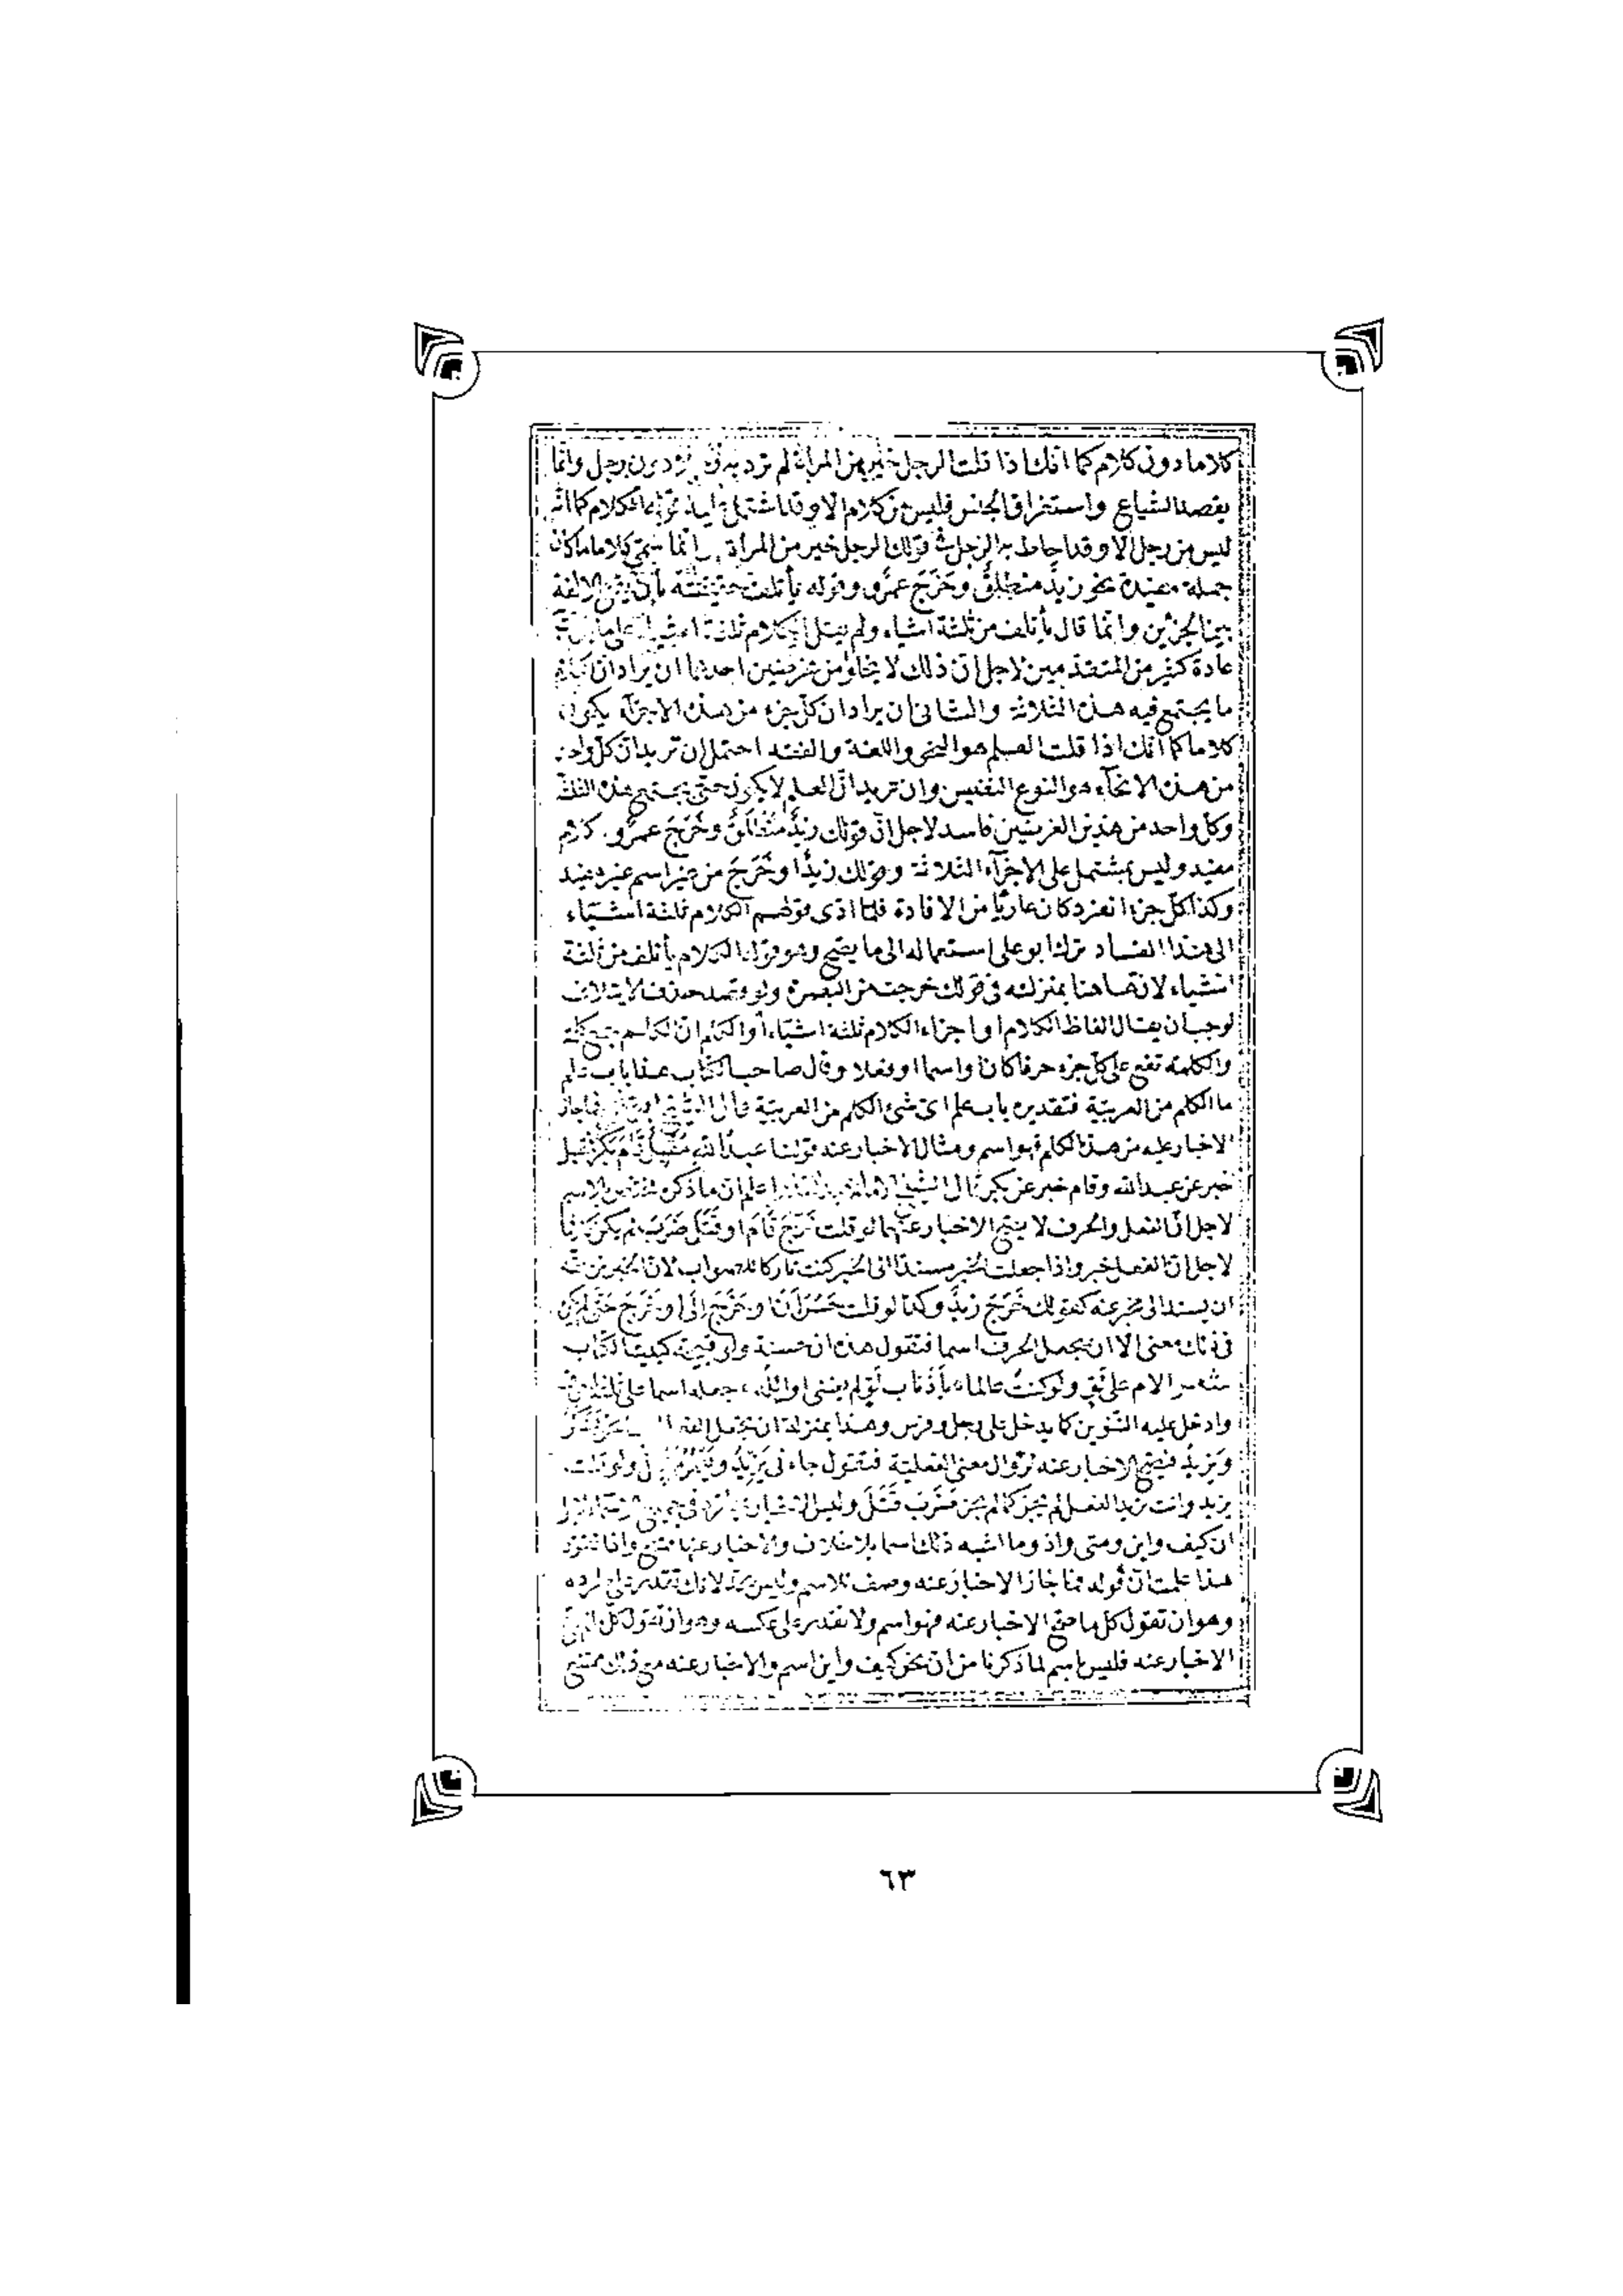 كلاما دون كلام كما انك اذا قلت الرجل خير من المرأة لم ترد به رجل دون رجل وانما
يقصد الشياع واستغراق الجنس فليس من كلام الا وقد اشتمل عليه قولنا الكلام كما انه
ليس من رجل الا وقد احاط به الرجل في قولك الرجل خير من المرأة وانما يسمى كلاما ما كان
جملة مفيدة نحو زيدٌ منطلقٌ وخَرَجَ عمرٌو وقوله يأتلف حقيقته الالفة
بين الجزئين وانما قال يأتلف من ثلثة اشياء ولم يقل الكلام ثلثة اشياء على
عادة كثير من المتقدمين لاجل ان ذلك لا يخلو من غرضين احدهما ان يراد ان الكلام
ما يجتمع فيه هذه الثلاثة والثانى ان يراد ان كل جزء من هذه الاجزآء يكون
كلاما كما انك اذا قلت العلم هو النحو واللغة والفقه احتمل ان تريد ان كل واحد
من هذه الانحآء هو النوع النفيس وان تريد ان العلم لا يكون حتى يجتمع هذه الثلثة
وكل واحد من هذين الغرضين فاسد لاجل ان قولك زيدٌ مُنطَلِقٌ وخَرَجَ عمرٌو كلام
مفيد وليس بمشتمل على الاجزآء الثلاثة وقولك زيدًا وخَرَجَ من غير اسم غير مفيد
وكذا كل جزء انفرد كان عاريًا من الافادة فلما ادى قولهم الكلام ثلثة اشيآء
الى هذا الفساد ترك ابو على استعماله الى ما يصح وهو قوله الكلام يأتلف من ثلثة
اشياء لان من هاهنا بمنزلته فى قولك خرجت من البصرة ولو قصد حذف الايتلاف
لوجب ان يقال الفاظ الكلام او اجزاء الكلام ثلثة اشيآء او الكلم لان الكلم جمع كلمة
والكلمة تقع على كل جزء حرفا كان او اسما او فعلا وقال صاحب الكتاب هذا باب علم
ما الكلم من العربيّة فتقديره باب علم اى شئ الكلم من العربيّة قال الشيخ ابو على فما جاز
الاخبار عنه من هذه الكلم فهو اسم ومثال الاخبار عنه قولنا عبدُ الله مُقْبِلٌ وقام بَكْرٌ فمقبل
خبر عن عبد الله وقام خبر عن بكر قال الشيخ الامام اعلم ان ما ذكره مختص بالاسم
لاجل ان الفعل والحرف لا يصح الاخبار عنهما لو قلت خَرَجَ قَامَ او قَتَلَ ضَرَبَ لم يكن كلاما
لاجل ان الفعل خبر واذا جعلت الخبر مسندًا الى الخبر كنت تاركا للصواب لان الخبر من حقه
ان يسند الى مخبر عنه كقولك خَرَجَ زيدٌ وكذا لو قلت حَسُنَ اَنْ وخَرَجَ اِلَى او خَرَجَ حَتَّى لم يكن
فى ذلك معنى الا ان يجعل الحرف اسما فتقول هذه ان حسنة ولو قبيحة كبيت الكتاب
شعر الام على لَوٍّ ولو كنتُ عالما بأذْنَابِ لَوٍّ لم تفتنى اوائلُهُ جعله اسما على
وادخل عليه التّنوين كما يدخل على رجل وفرس وهذا بمنزلة ان تجعل الفعل
ويَزيدُ فيصح الاخبار عنه لزوال معنى الفعليّة فتقول جاءنى يَزيدُ ولو قلت
يزيد وانت تريد الفعل لم يجز كما لم يجز ضَرَبَ قَتَلَ وليس
ان كيف واين ومتى واذ وما اشبه ذلك اسما بلا خلاف والاخبار عنها ممتنع واذا تقرر
هذا علمت ان قوله فما جاز الاخبار عنه وصف للاسم وليس بحد لانك تقدر على طرده
وهو ان تقول كل ما صح الاخبار عنه فهو اسم ولا تقدر على عكسه وهو ان تقول كل ما لم يصح
الاخبار عنه فليس باسم لما ذكرنا من ان نحو كيف واين اسم والاخبار عنه مع ذلك ممتنع
٦٣